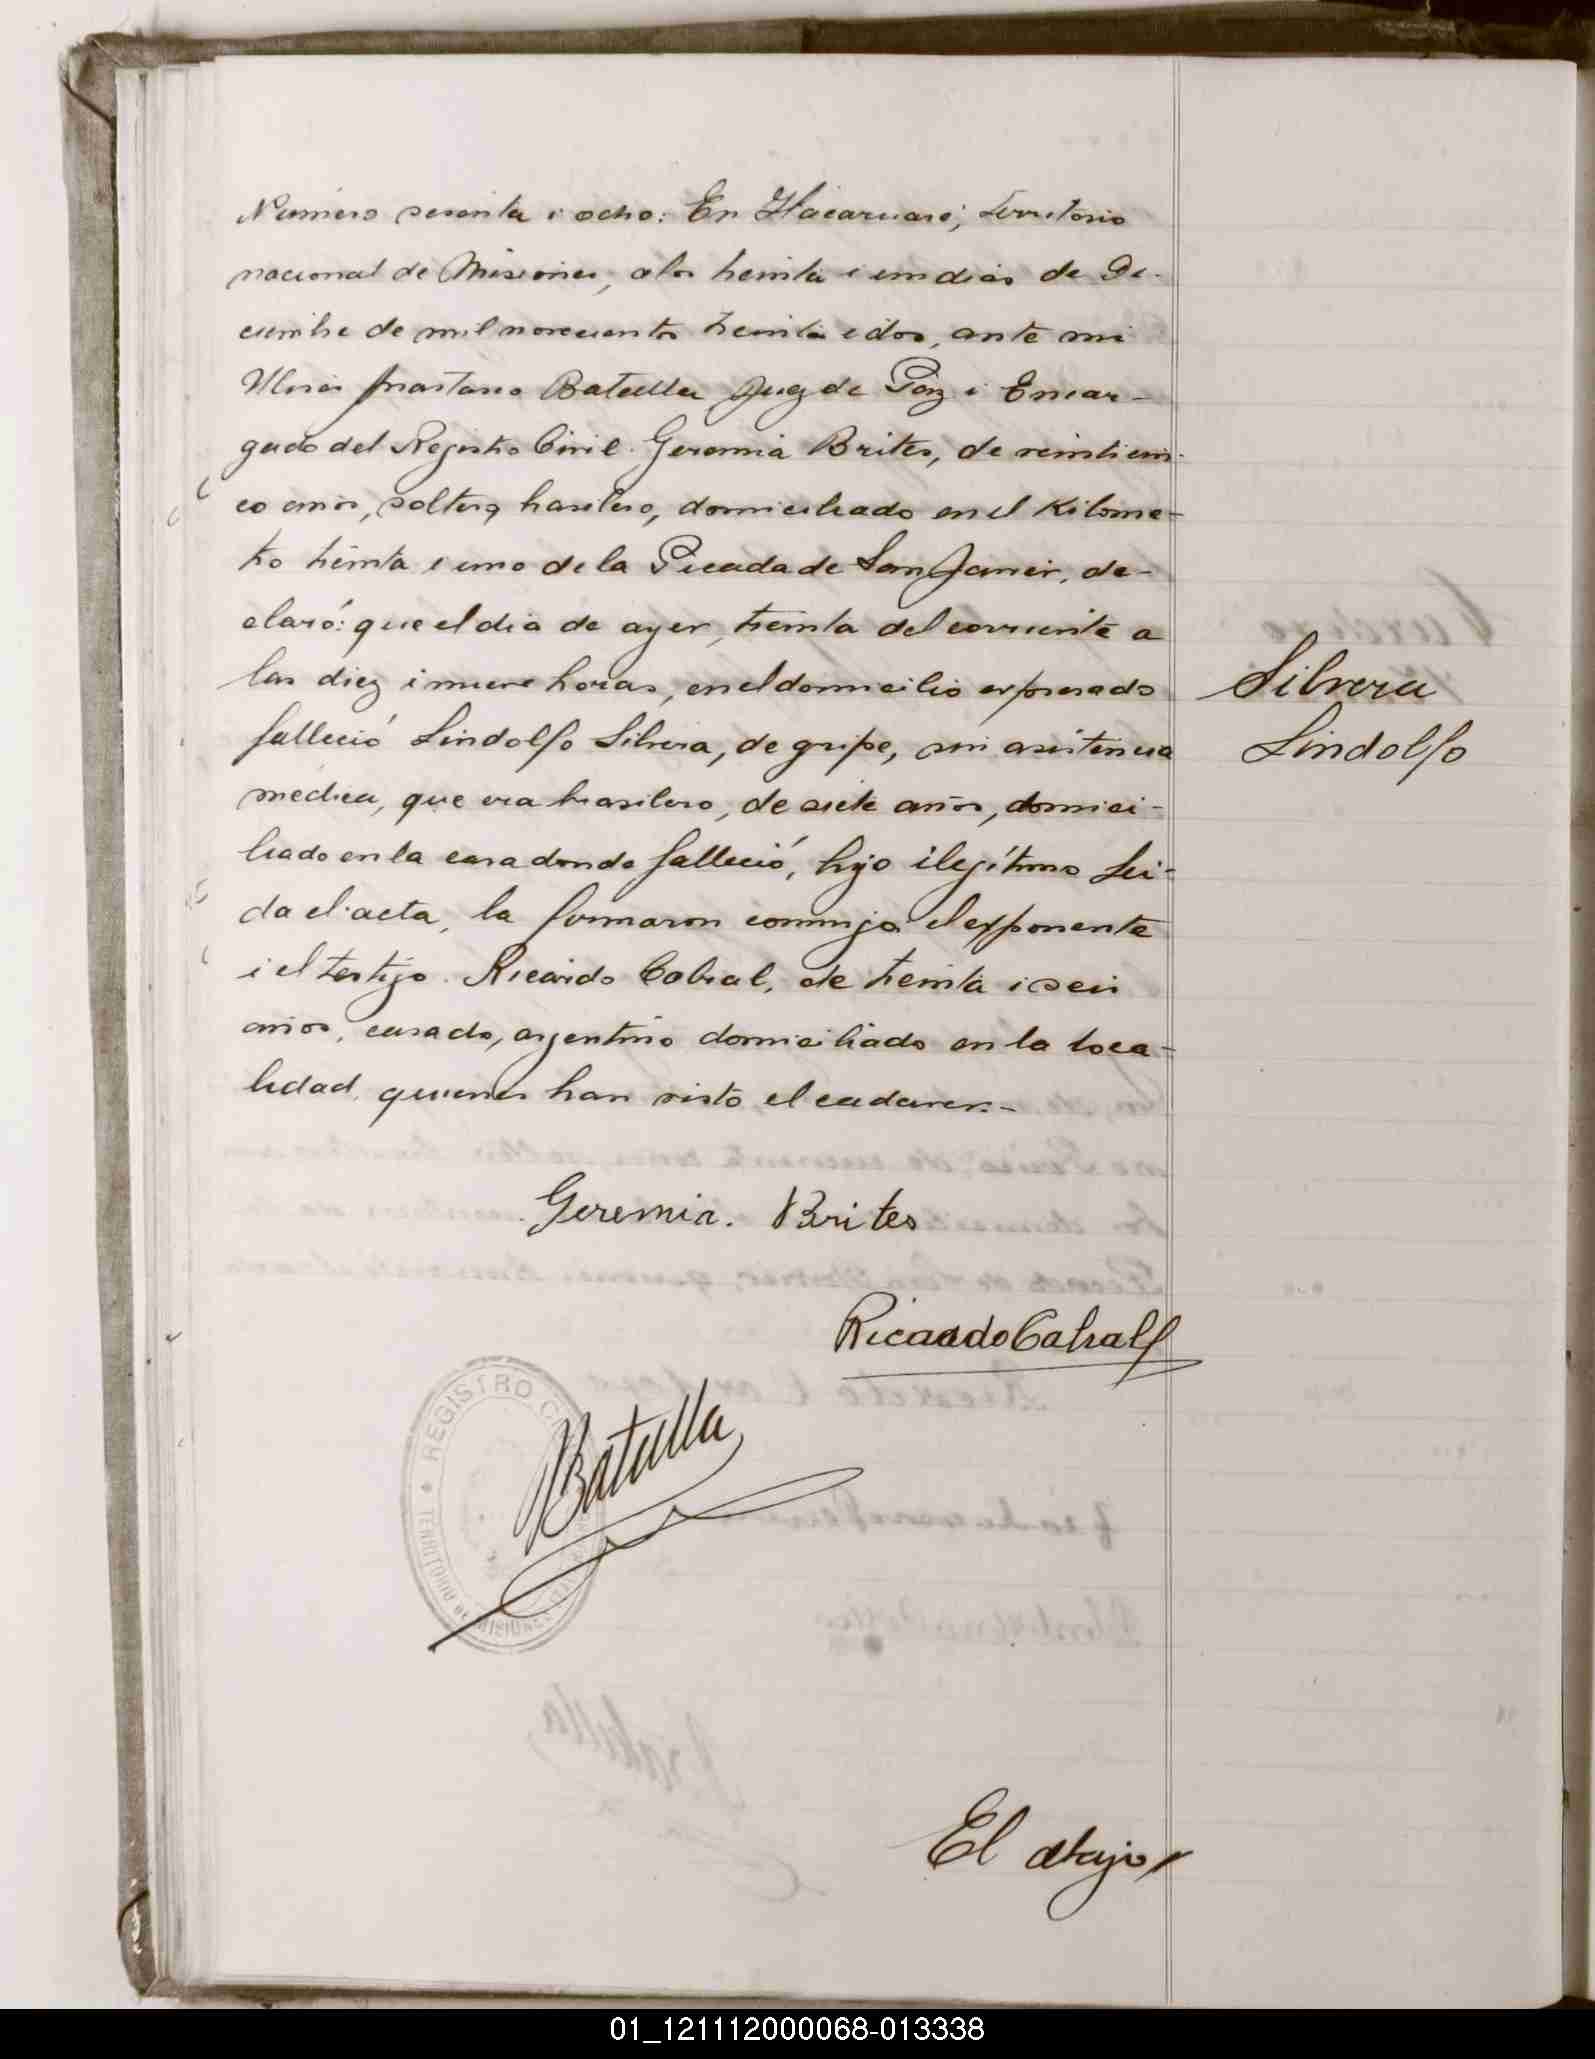 Número sesenta i ocho: En Itacaruaré, Territorio
nacional de Misiones, a los treinta i un dias de Di-
ciembre de mil novecientos treinta i dos, ante mi
Batulla Juez de Paz i Encar-
gado del Registro Civil. Geremia Brites, de veinticin-
co años, soltero, brasilero, domiciliado en el Kilome-
tro treinta i uno de la Picada de San Javier, de-
claró: que el dia de ayer, treinta del corriente a
las diez i nueve horas, en el domicilio expresado
falleció Lindolfo Silvera, de gripe, sin asistencia
médica, que era brasilero, de siete años, domici-
liado en la casa donde falleció, hijo ilegítimo Lei-
da el acta, la firmaron conmigo el exponente
i el testigo. Ricardo Cabral, de treinta i seis
años, casado, argentino domiciliado en la loca-
lidad, quienes han visto el cadaver.-
Silvera
Lindolfo
Geremia. Brites
Ricardo Cabral
REGISTRO CI
TERRITORIO DE MISIONES
Batulla
El
01_121112000068-013338